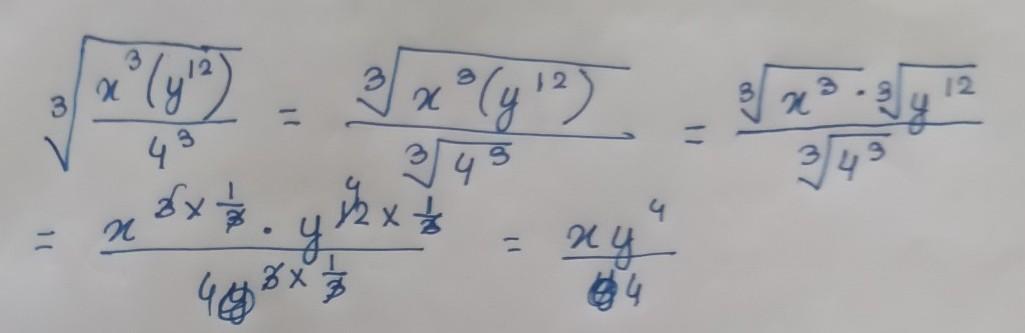 ∛(x³(y¹²)/4³) = ∛(x³(y¹²))/∛(4³) = (∛(x³) · ∛(y¹²))/∛(4³)
= (x^(3×1/3) · y^(12×1/3))/(4^(3×1/3)) = xy⁴/4